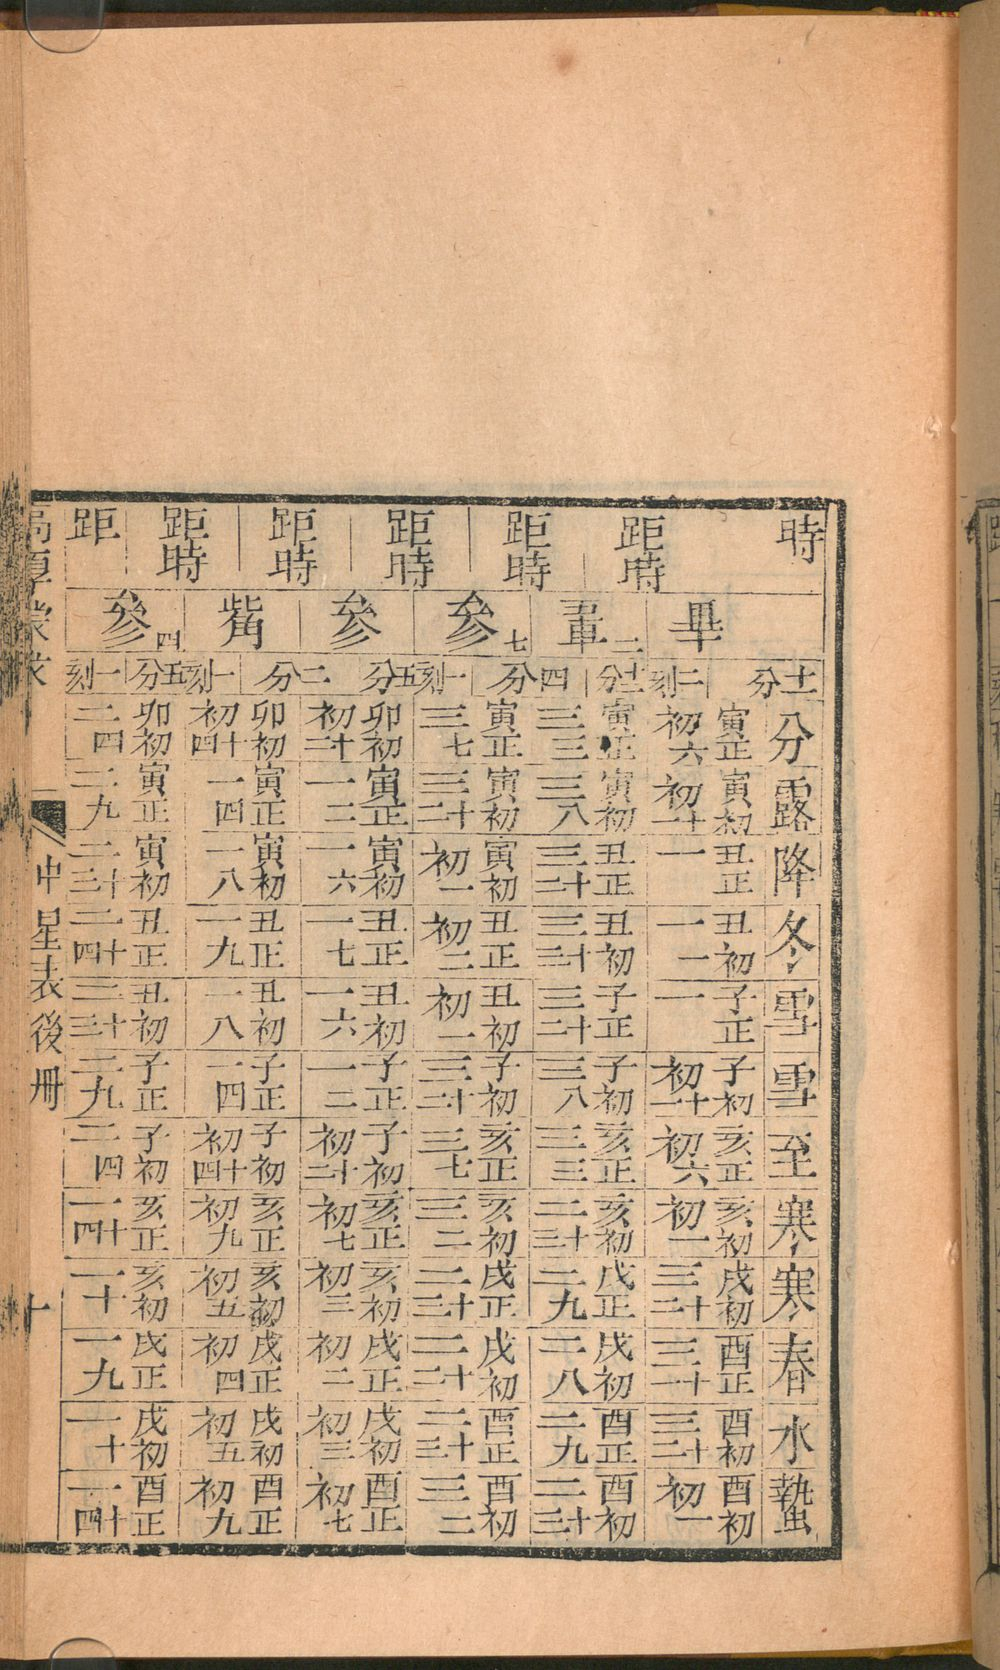 時 十一分 分 露 降 冬 雪 雪 至 寒 寒 春 水 蟄
距時 畢 二刻十二分 寅正初六 寅初初十一 丑正一 丑初一一 子正一 子初初十一 亥正初六 亥初初一 戌初三十二 酉正三十一 酉初三十二 酉初初一
距時 五車二 四分 寅正三三 寅初三八 丑正三十二 丑初三十三 子正三十二 子初三八 亥正三三 亥初二十三 戌正二九 戌初二八 酉正二九 酉初二十三
距時 參七 一刻五分 寅正三七 寅初三十二 寅初初一 丑正初二 丑初初一 子初三十二 亥正三七 亥初三二 戌正二十三 戌初二十二 酉正二十三 酉初三二
距時 參 二分 卯初初十二 寅正一二 寅初一六 丑正一七 丑初一六 子正一二 子初初十二 亥正初七 亥初初三 戌正初二 戌初初三 酉正初七
距時 觜 一刻五分 卯初初十四 寅正一四 寅初一八 丑正一九 丑初一八 子正一四 子初初十四 亥正初九 亥初初五 戌正初四 戌初初五 酉正初九
距 參四 一刻 卯初二四 寅正二九 寅初二十三 丑正二十四 丑初二十三 子正二九 子初二四 亥正一十四 亥初一十 戌正一九 戌初一十 酉正一十四
高厚蒙求 中星表後冊 十